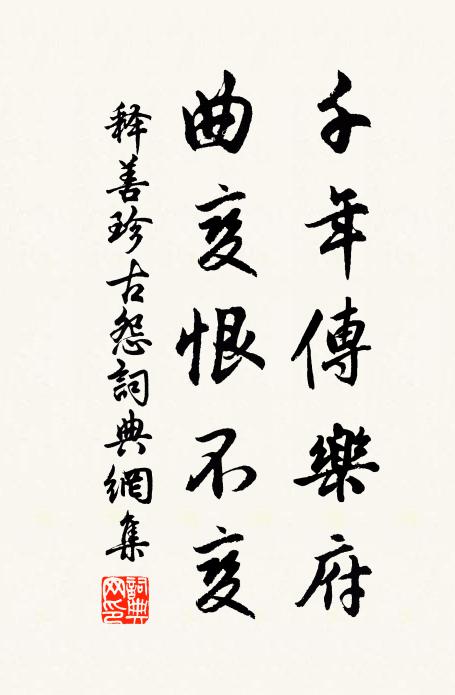 千年傳樂府
曲变恨不变
释善珍古怨詞典網集
詞典网印